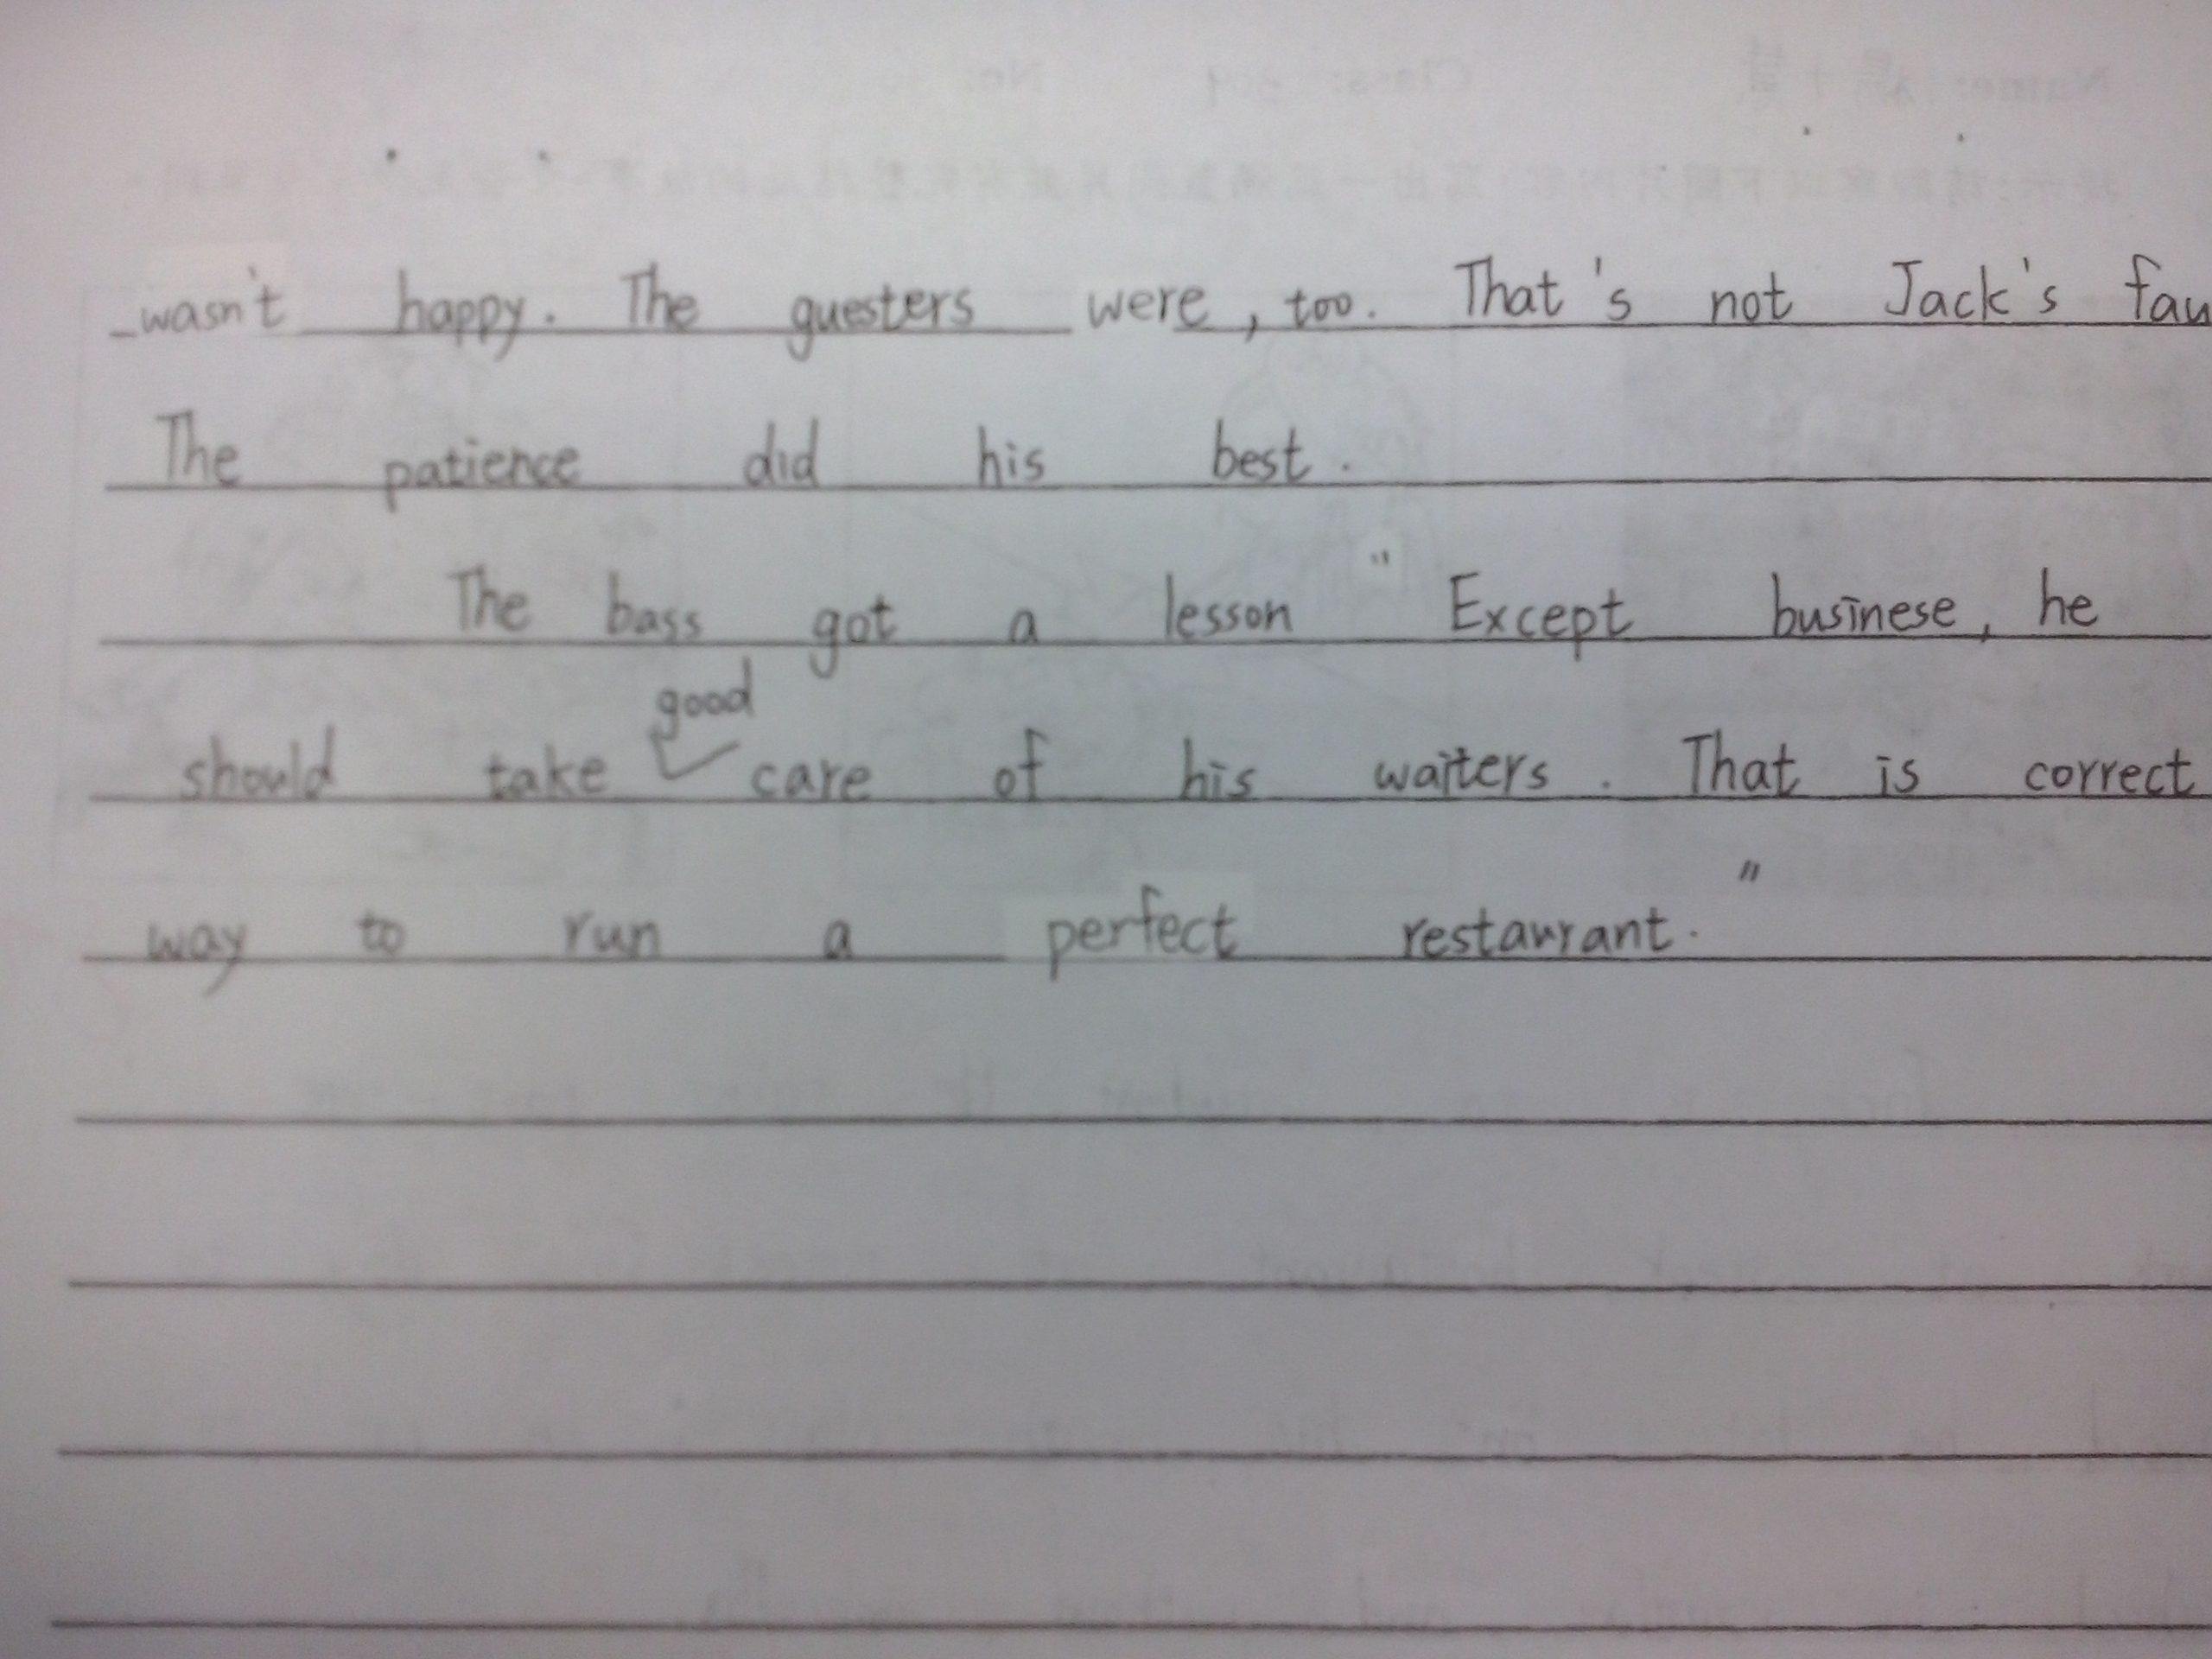 wasn't happy. The guesters were, too. That's not Jack's fau
The patience did his best.
The bass got a lesson " Except businese, he
should take good care of his waiters. That is correct
way to run a perfect restaurant."